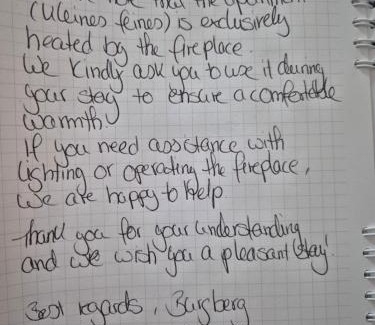 (kleines feines) is exclusively
heated by the fireplace.
We kindly ask you to use it during
your stay to ensure a comfortable
warmth.
If you need assistance with
lighting or operating the fireplace,
we are happy to help.
Thank you for your understanding
and we wish you a pleasant stay!
Best regards, Burgberg